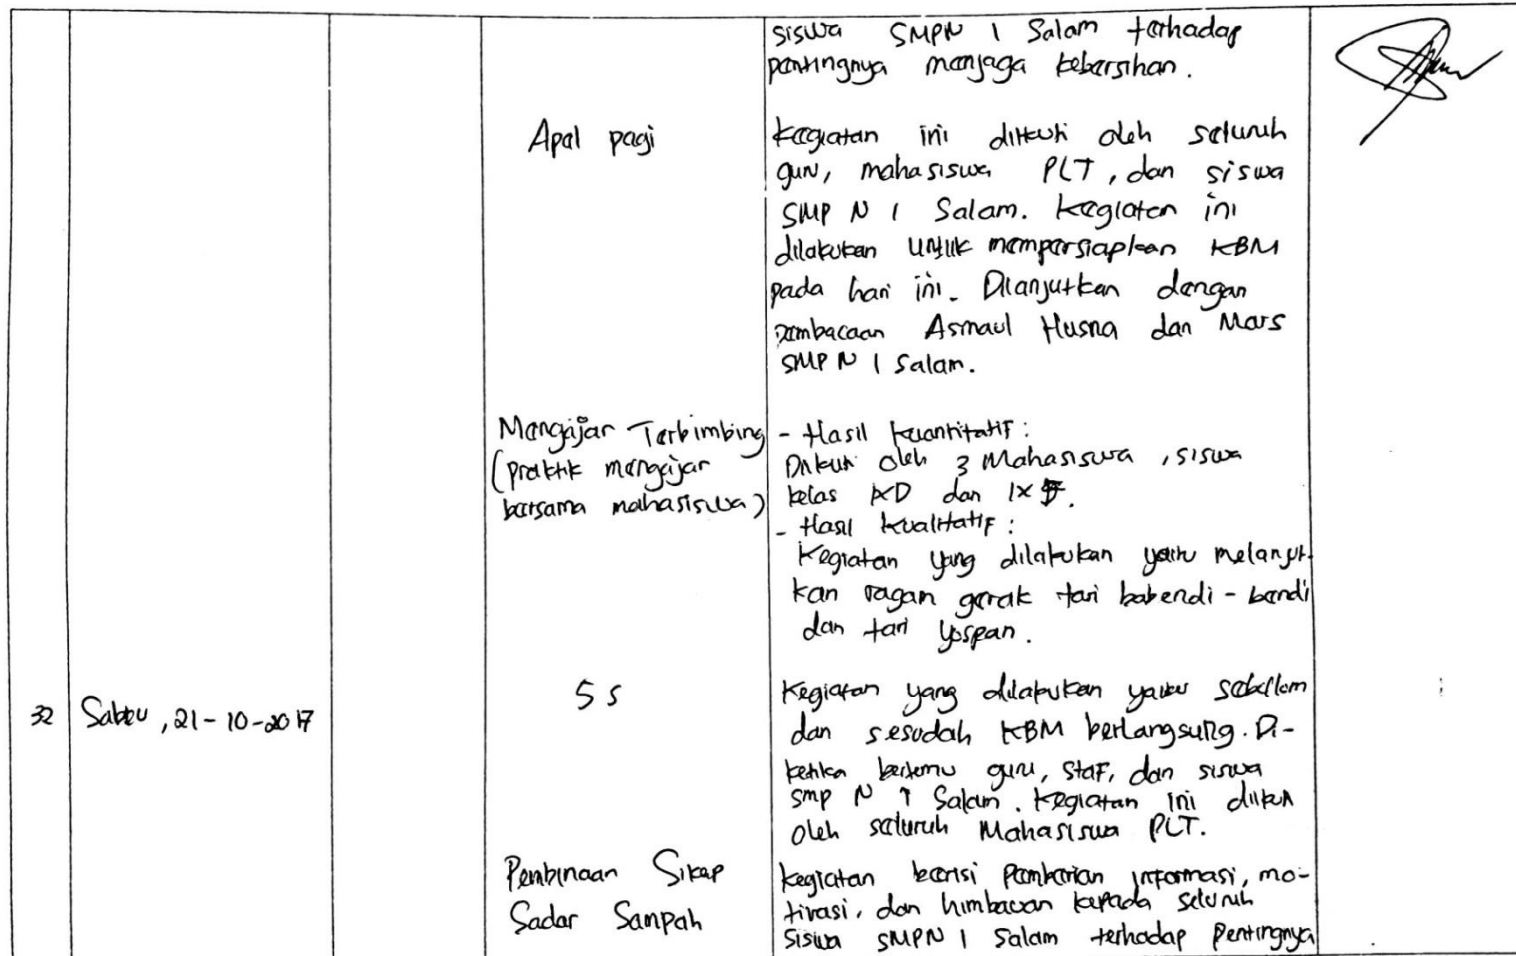 siswa SMPN 1 Salam terhadap
pentingnya menjaga kebersihan.
Apel pagi
Kegiatan ini diikuti oleh seluruh
guru, mahasiswa PLT, dan siswa
SMP N 1 Salam. Kegiatan ini
dilakukan untuk mempersiapkan KBM
pada hari ini. Dilanjutkan dengan
pembacaan Asmaul Husna dan Mars
SMP N 1 Salam.
Mengajar Terbimbing
(praktik mengajar
bersama mahasiswa)
- Hasil kuantitatif:
Diikuti oleh 3 Mahasiswa, siswa
kelas IXD dan IX F.
- Hasil kualitatif:
Kegiatan yang dilakukan yaitu melanjut-
kan ragam gerak tari babendi-bendi
dan tari yospan.
32
Sabtu, 21-10-2017
5 S
Kegiatan yang dilakukan yaitu sebelum
dan sesudah KBM berlangsung. Di-
ketika bertemu guru, staf, dan siswa
smp N 1 Salam. Kegiatan ini diikuti
oleh seluruh Mahasiswa PLT.
Pembinaan Sikap
Sadar Sampah
Kegiatan berisi pemberian informasi, mo-
tivasi, dan himbauan kepada seluruh
siswa SMPN 1 Salam terhadap pentingnya